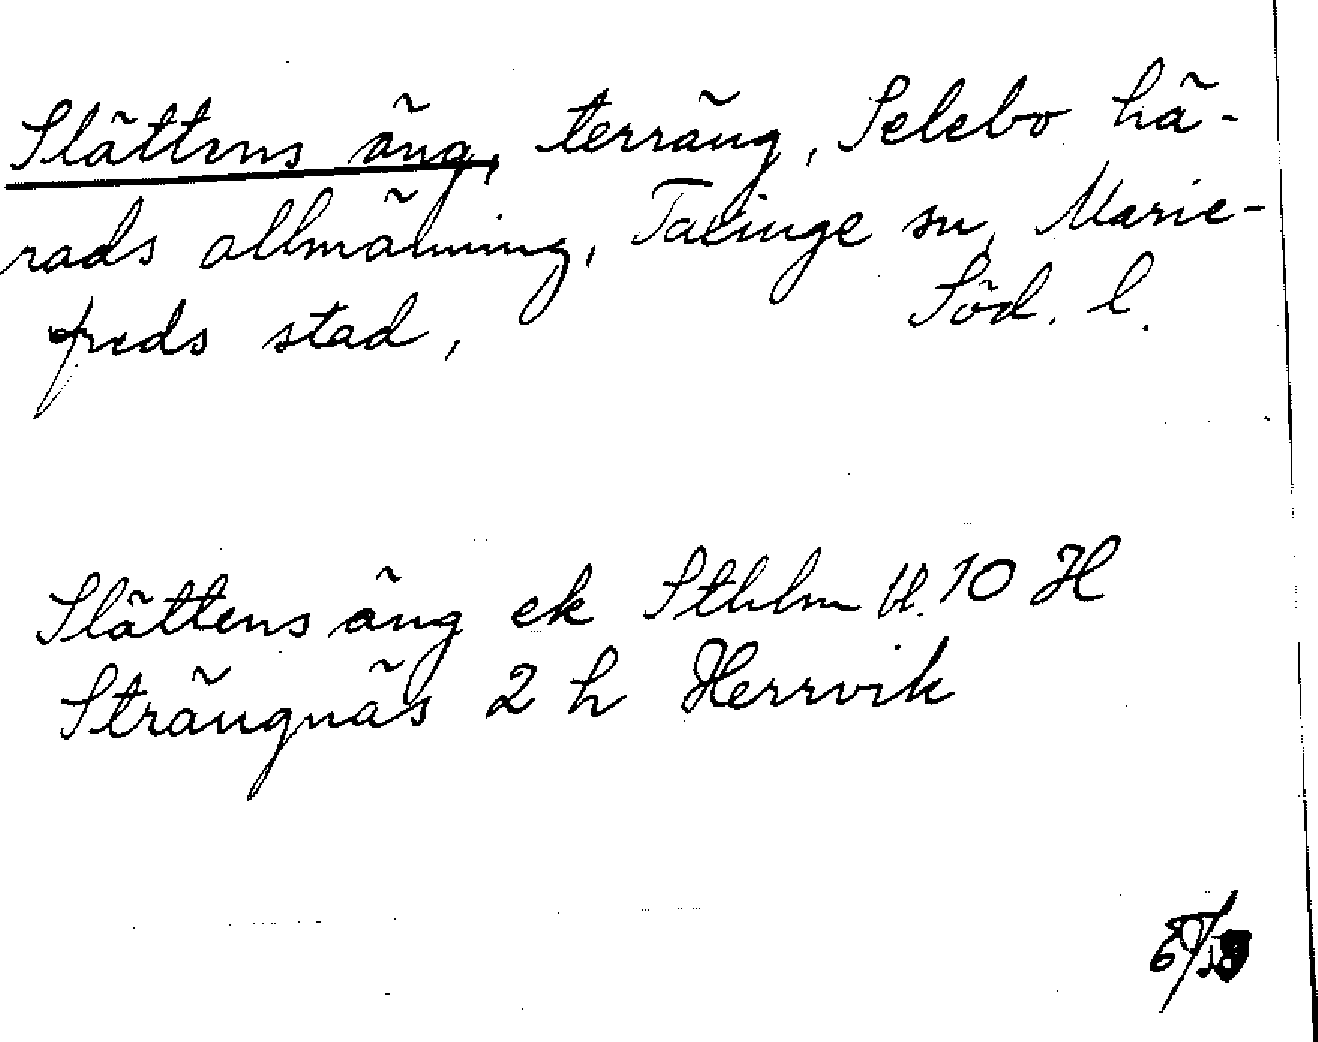 Slättens äng, terräng, Selebo hä-
rads allmänning, Taxinge sn, Marie-
freds stad, Söd. l.
Slättens äng ek Sthlm bl. 10 H
Strängnäs 2 h Herrvik